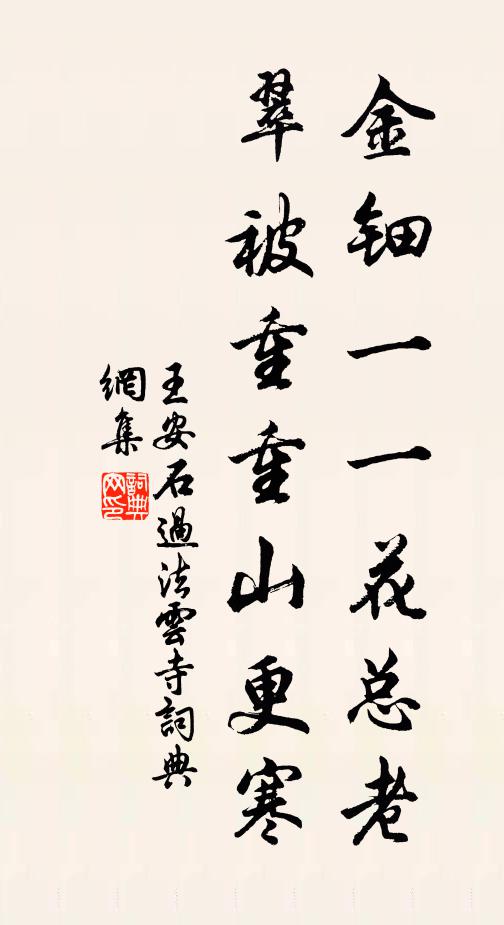 金鈿一一花总老
翠被重重山更寒
王安石過法雲寺詞典
網集
詞典
网印